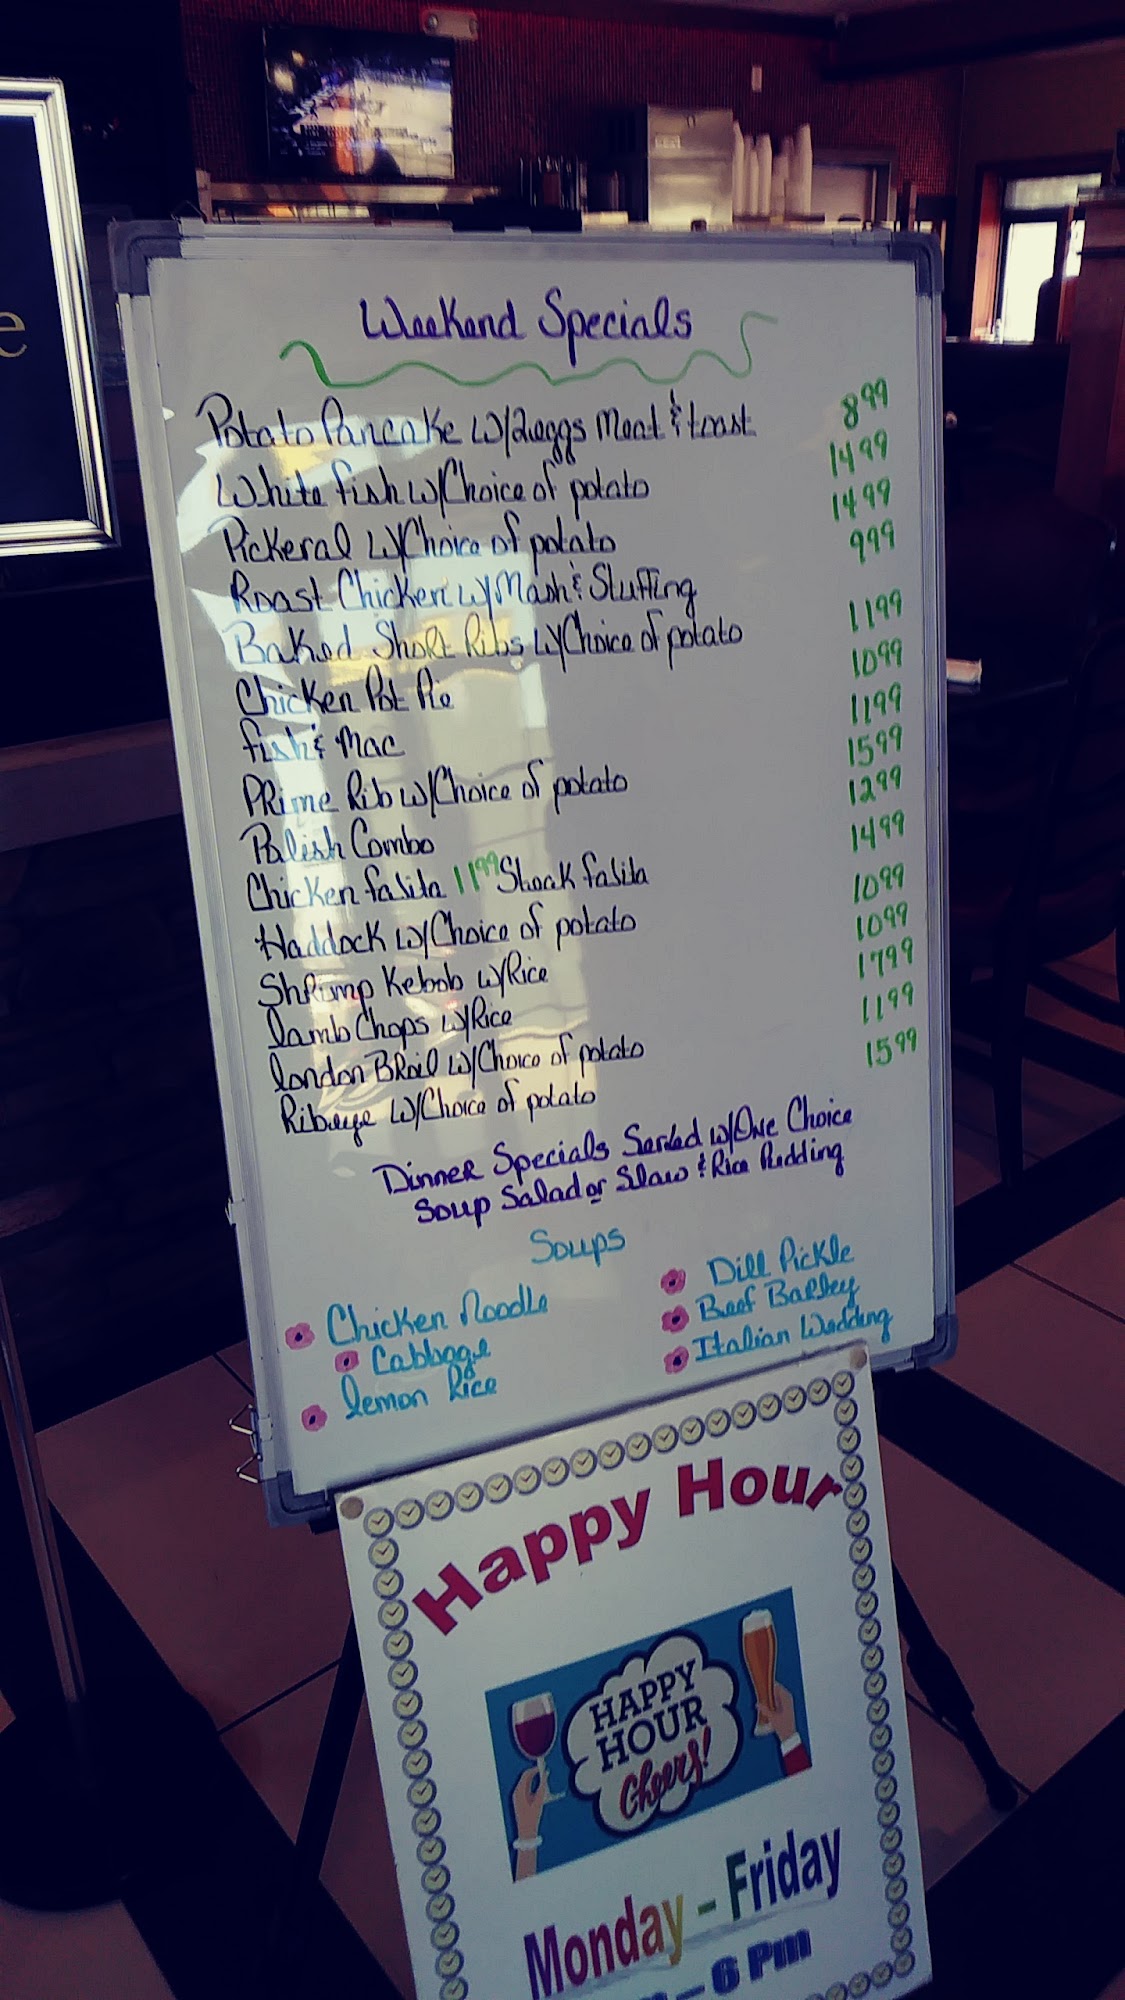 e
Weekend Specials
Potato Pancake W/2eggs Meat & toast 8 99
White fish W/Choice of potato 14 99
Pickeral W/Choice of potato 14 99
Roast Chicken W/Mash & Stuffing 9 99
Baked Short Ribs W/Choice of potato 11 99
Chicken Pot Pie 10 99
fish & Mac 11 99
PRime Rib W/Choice of potato 15 99
Polish Combo 12 99
Chicken fasita 11 99 Steak fasita 14 99
Haddock W/Choice of potato 10 99
Shrimp Kebob W/Rice 10 99
lamb Chops W/Rice 17 99
london BRoil W/Choice of potato 11 99
Ribeye W/Choice of potato 15 99
Dinner Specials Served W/One Choice
Soup Salad or Slaw & Rice Pudding
Soups
Chicken Noodle
Cabbage
lemon Rice
Dill Pickle
Beef Barley
Italian Wedding
Happy Hour
HAPPY
HOUR
Cheers!
Monday - Friday
– 6 Pm